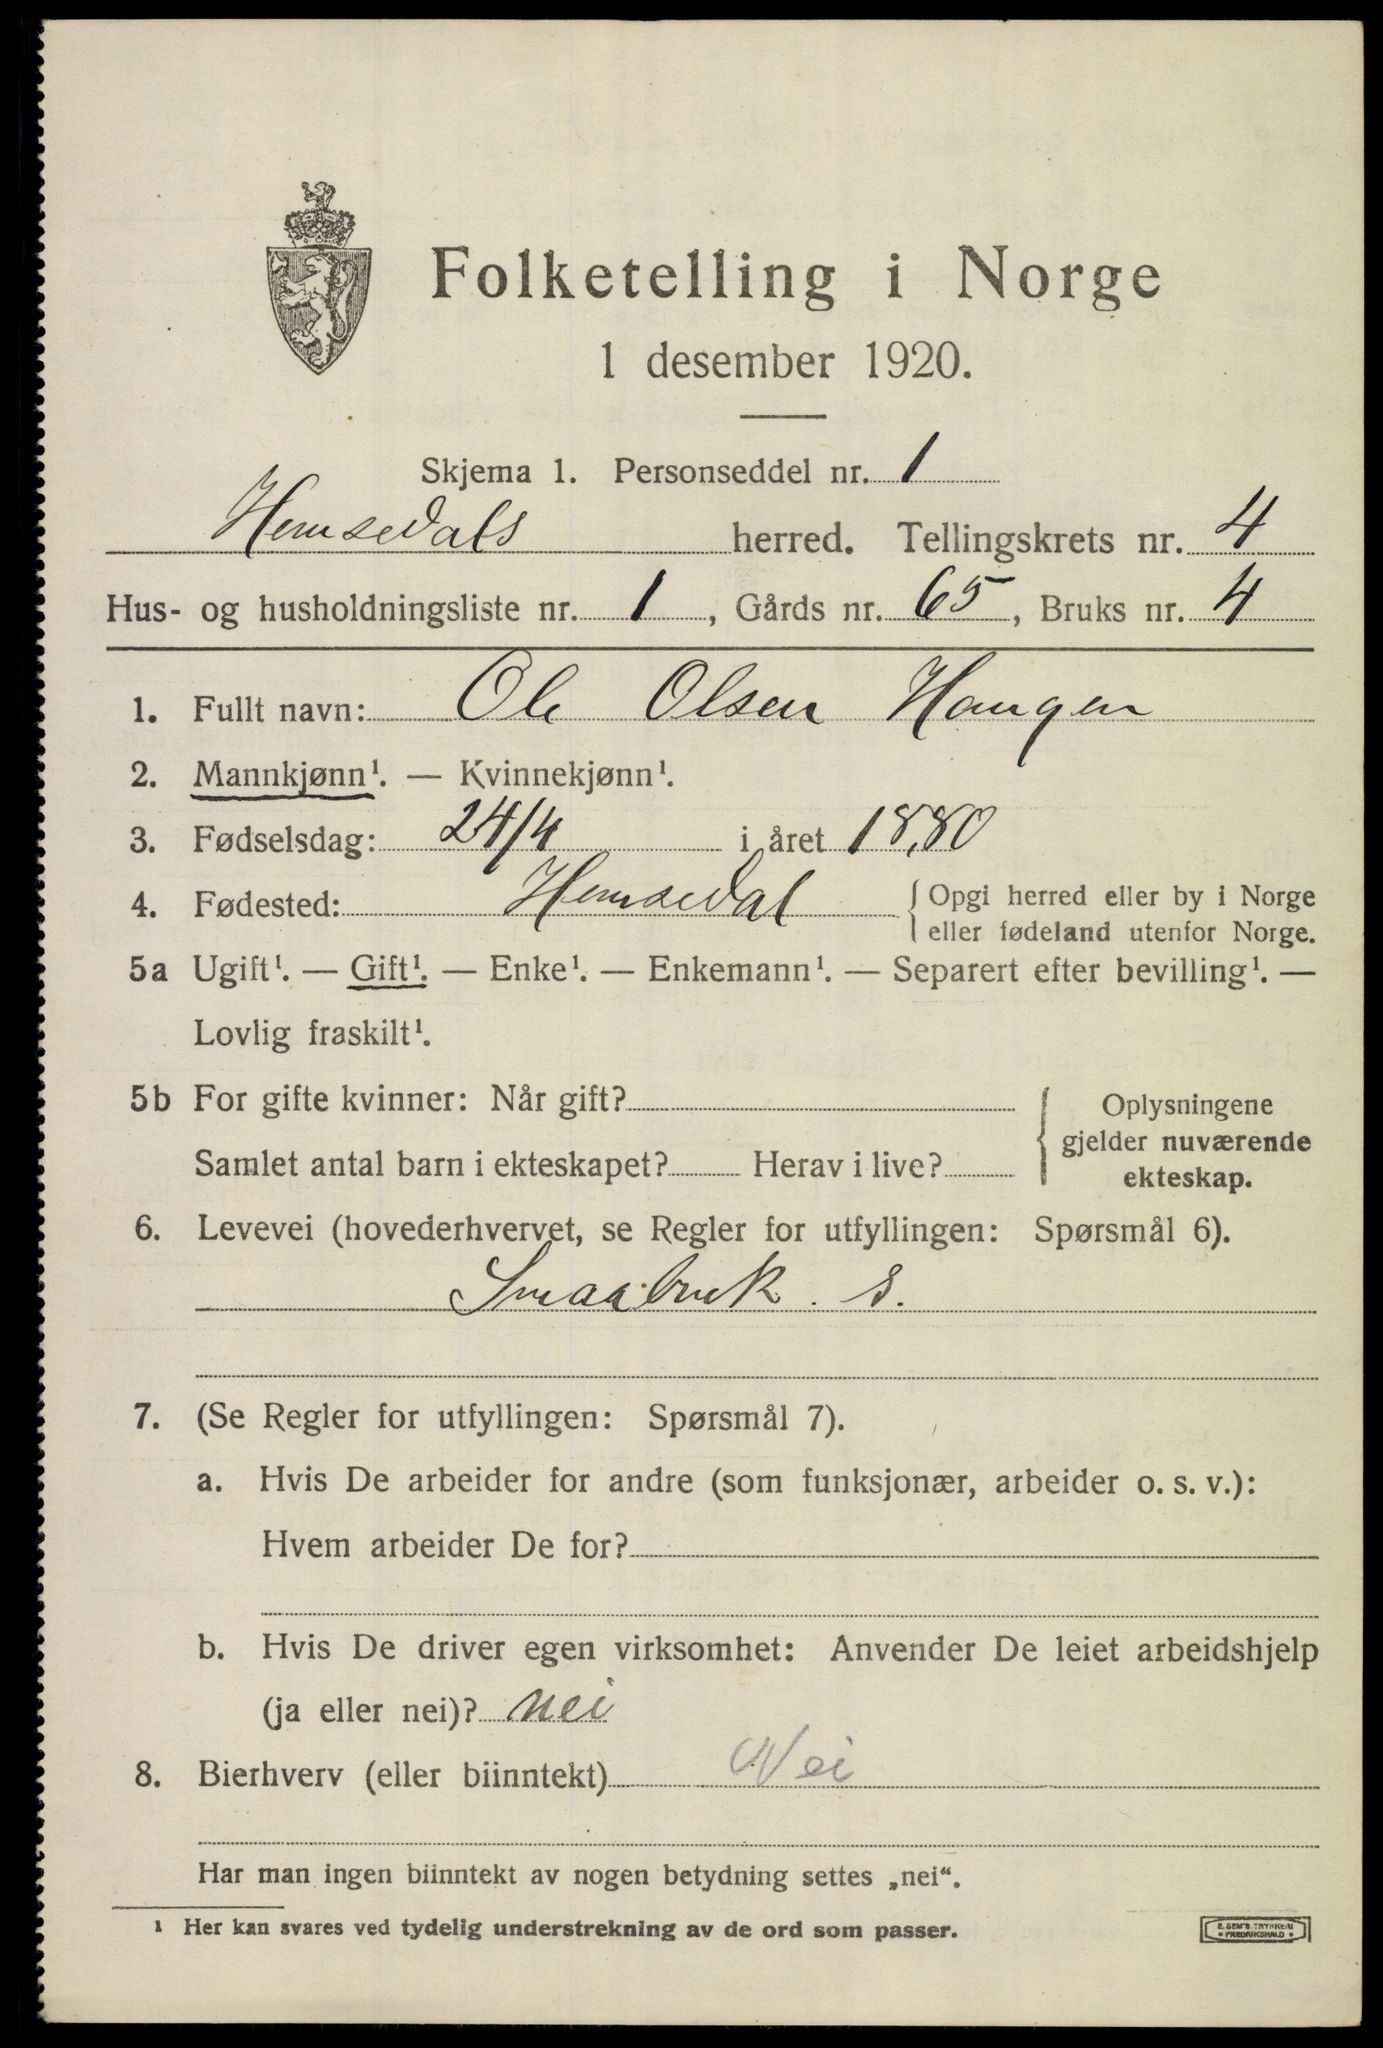 Folketelling i Norge
1 desember 1920.
Skjema 1. Personseddel nr. 1
Hemsedals herred. Tellingskrets nr. 4
Hus- og husholdningsliste nr. 1, Gårds nr. 65, Bruks nr. 4
1. Fullt navn: Ole Olsen Haugen
2. Mannkjønn¹. — Kvinnekjønn¹.
3. Fødselsdag: 24/4 i året 1880
4. Fødested: Hemsedal { Opgi herred eller by i Norge
eller fødeland utenfor Norge.
5a Ugift¹. — Gift¹. — Enke¹. — Enkemann¹. — Separert efter bevilling¹. —
Lovlig fraskilt¹.
5b For gifte kvinner: Når gift?
Samlet antal barn i ekteskapet? Herav i live?
Oplysningene
gjelder nuværende
ekteskap.
6. Levevei (hovederhvervet, se Regler for utfyllingen: Spørsmål 6).
Smaabruk. s.
7. (Se Regler for utfyllingen: Spørsmål 7).
a. Hvis De arbeider for andre (som funksjonær, arbeider o. s. v.):
Hvem arbeider De for?
b. Hvis De driver egen virksomhet: Anvender De leiet arbeidshjelp
(ja eller nei)? nei
8. Bierhverv (eller biinntekt) Nei
Har man ingen biinntekt av nogen betydning settes „nei“.
¹ Her kan svares ved tydelig understrekning av de ord som passer.
E. SEM'S TRYKKERI
FREDRIKSHALD